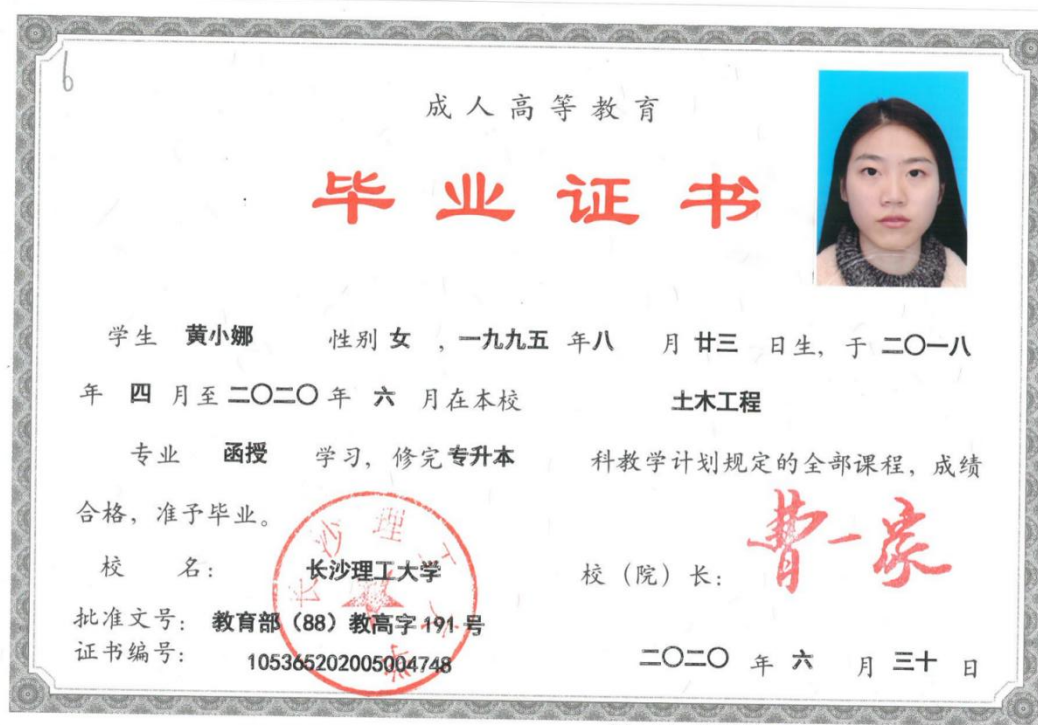 6
成人高等教育
毕业证书
学生 黄小娜 性别 女 ，一九九五 年 八 月 廿三 日生，于 二〇一八
年 四 月至 二〇二〇 年 六 月在本校 土木工程
专业 函授 学习，修完 专升本 科教学计划规定的全部课程，成绩
合格，准予毕业。
校 名： 长沙理工大学 校（院）长： 曹一家
批准文号： 教育部（88）教高字 191 号
证书编号： 105365202005004748 二〇二〇 年 六 月 三十 日
长沙理工大学